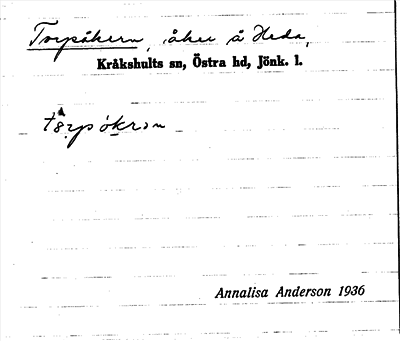 Torpåkern, åker å Heda,
Kråkshults sn, Östra hd, Jönk. l.
Annalisa Anderson 1936